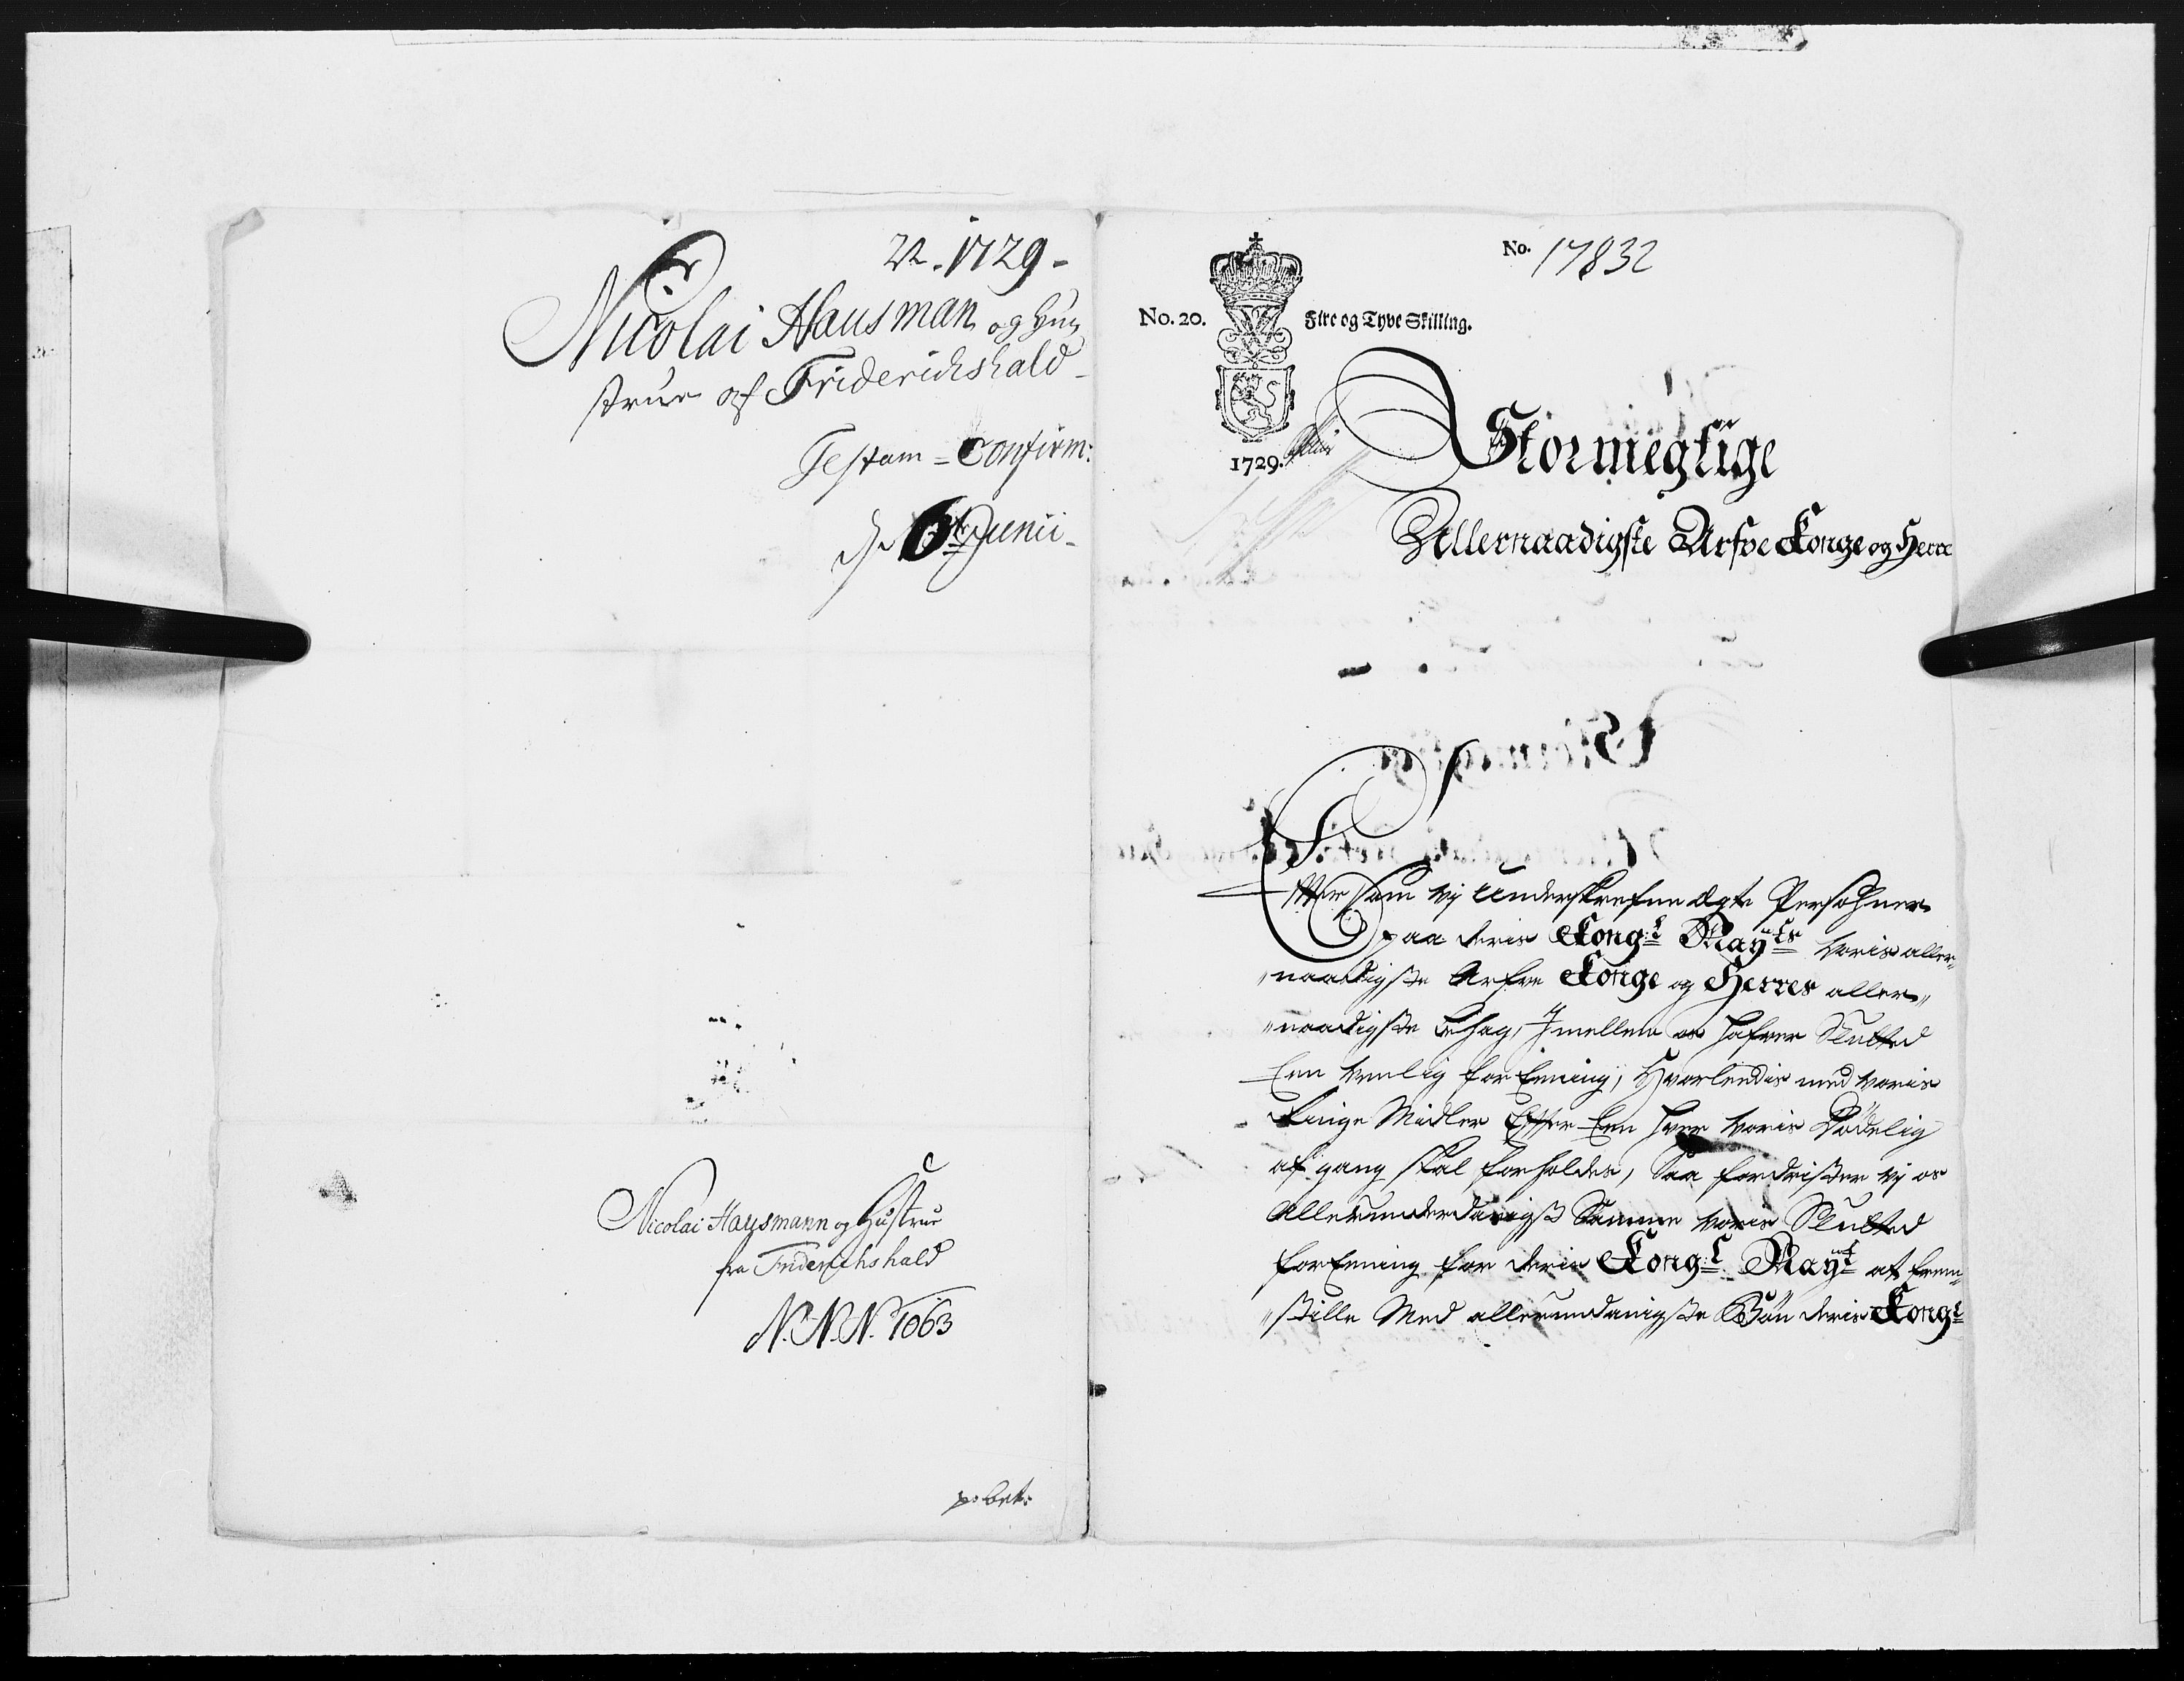 22. 1729.
Nicolai Hausman og Hu-
strue af Friderichshald
Testam = Confirm:
d. 3t Junii
Nicolai Haysmann og Hustrue
fra Friderichshald
N. N. N. 1063
p: bet:
No. 17832
No. 20. Fire og Tyve Skilling.
1729.
Stormegtige
Allernaadigste Arfve Konge og Herre
Efter som vj Underskrefne Ægte Persohner
paa deris Kong:l Mayts voris aller-
naadigste Arfve Konge og Herres aller-
naadigste behag, Imellem os hafver Slutted
Een venlig forEening, Hvorlendis med voris
Ringe Midler Efter Een hver voris Dödelig
afgang skal forholdes, Saa fordrister vj os
Allerunderdanigst Samme voris Slutted
forEening for deris Kong:l Mayt at frem-
stille Med allerundanigste Bön deris Kongl